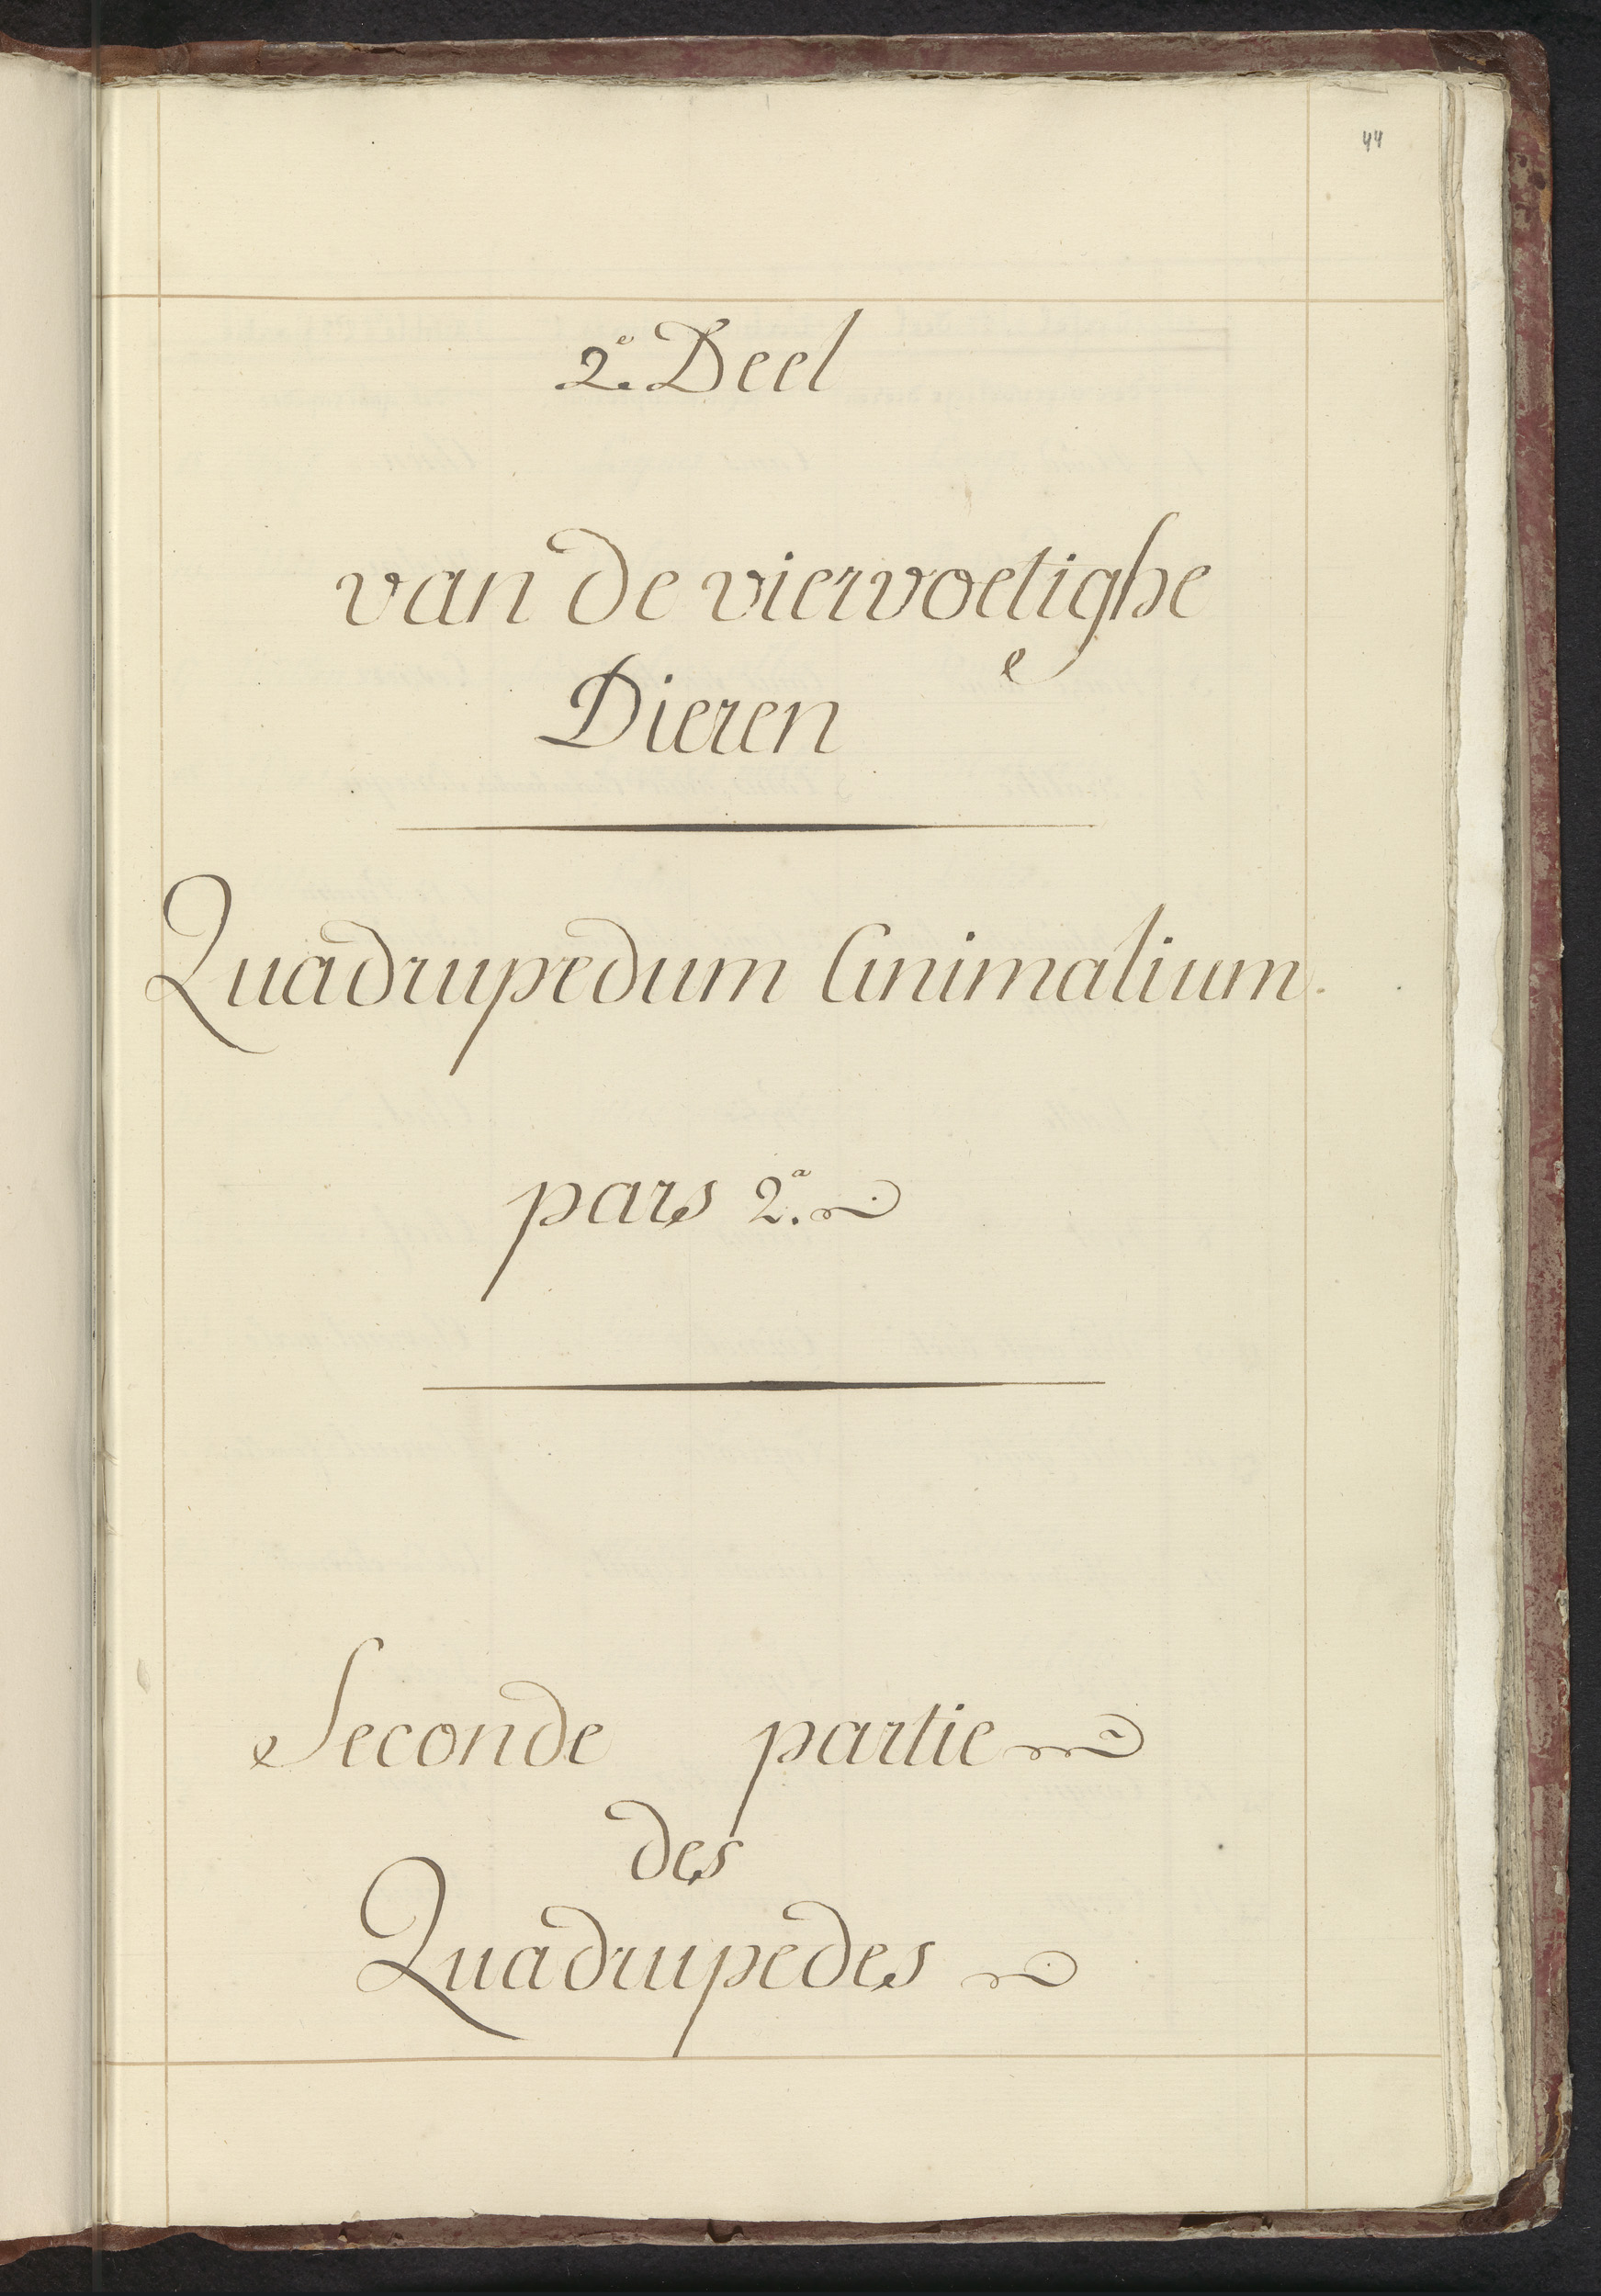 44
2.e Deel
van de viervoetighe
Dieren
Quadrupedum Animalium.
pars 2.a
Seconde partie
des
Quadrupedes